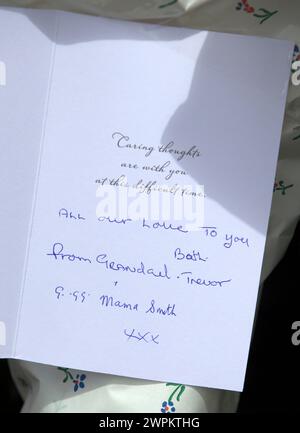 Caring thoughts
are with you
at this difficult time.
All our Love To you
Both.
from Grandad. Trevor
+
G. GG Mama Smith
xxx